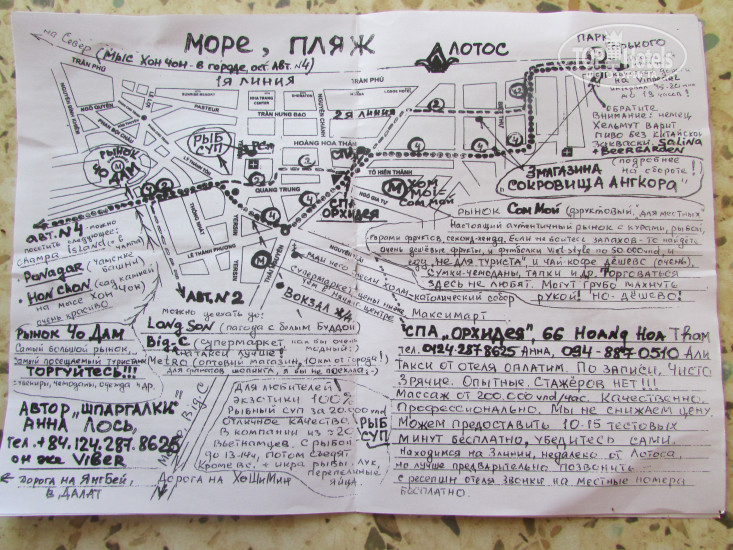 МОРЕ, ПЛЯЖ
ЛОТОС
ПАРК
ГОРЬКОГО
на Север
(МЫС ХОН ЧОН - в городе, ост. АВТ. №4)
1я ЛИНИЯ
TRẦN PHÚ
TRẦN PHÚ
на Vinpearl
до 19 часов
PASTEUR
NGÔ QUYỀN
LÊ LỢI
TRẦN HƯNG ĐẠO
2я ЛИНИЯ
PHAN BỘI CHÂU
HOÀNG HOA THÁM
РЫБ
СУП
РЫНОК
ЧО ДАМ
LÝ THÁNH TÔN
QUANG TRUNG
TÔ HIẾN THÀNH
NGÔ GIA TỰ
СПА
СПА
ОРХИДЕЯ
М
ХОМ
МОЙ=
СОМ МОЙ
THỐNG NHẤT
LÊ THÀNH PHƯƠNG
YERSIN
YERSIN
THÁI NGUYÊN
ОБРАТИТЕ
ВНИМАНИЕ: НЕМЕЦ
ХЕЛЬМУТ ВАРИТ
ПИВО БЕЗ КИТАЙСКОЙ
ЗАКВАСКИ. SALINA
+ BEERGARDEN
(подробнее
на обороте!)
3МАГАЗИНА
"СОКРОВИЩА АНГКОРА"
РЫНОК СОМ МОЙ (фруктовый, "для местных"
Настоящий аутентичный рынок с курами, рыбой,
горами фруктов, секонд-хенда. Если не боитесь запахов - то найдёте
очень дешёвые фрукты, и футболки Viet style по 50 000 vnd, и
еду "не для туриста", и чай-кофе дёшево (очень),
сумки-чемоданы, тапки и др. Торговаться
здесь не любят. Могут грубо махнуть
рукой! Но - дёшево!
АВТ. №4 - можно
посетить
следующее:
Champa Island
• Ponagar (чамские
башни)
• Hon Chon (сад камней
на мысе Хон
Чон)
очень красиво
РЫНОК ЧО ДАМ
Самый большой рынок,
самый посещаемый туристами
ТОРГУЙТЕСЬ!!!
сувениры, чемоданы, одежда и др.
АВТОР "ШПАРГАЛКИ"
АННА ЛОСЬ,
тел. +84.124.287.8625
он же VIBER
Дорога на ЯнгБей,
в ДАЛАТ
АВТ. №2
можно доехать до:
Long Son (пагода с белым Буддой)
Big.C (супермаркет
Metro (оптовый магазин, 10 км от города!)
ВОКЗАЛ Ж/Д
католический собор
Максимарт
Для любителей
экзотики 100%
Рыбный суп за 20.000 vnd
Отличное качество.
В компании из 2х
вьетнамцев. С рыбой
до 13-14ч, потом съедят
+ икра рыбы, лук,
перепелиные
яйца.
РЫБ
СУП
Дорога на ХоШиМин
СПА "ОРХИДЕЯ", 66 HOANG HOA Tham
тел. 0124-287 8625 Анна, 094-887-0510 Али
Такси от отеля оплатим. По записи. Чисто
Зрячие. Опытные. Стажёров НЕТ!!!
Массаж от 200.000 vnd/час. Качественно.
Профессионально. Мы не снижаем цену.
Можем предоставить 10-15 тестовых
минут бесплатно, убедитесь сами.
Находимся на 3 линии, недалеко от Лотоса,
но лучше предварительно позвонить -
с ресепшн отеля звонки на местные номера
бесплатно.